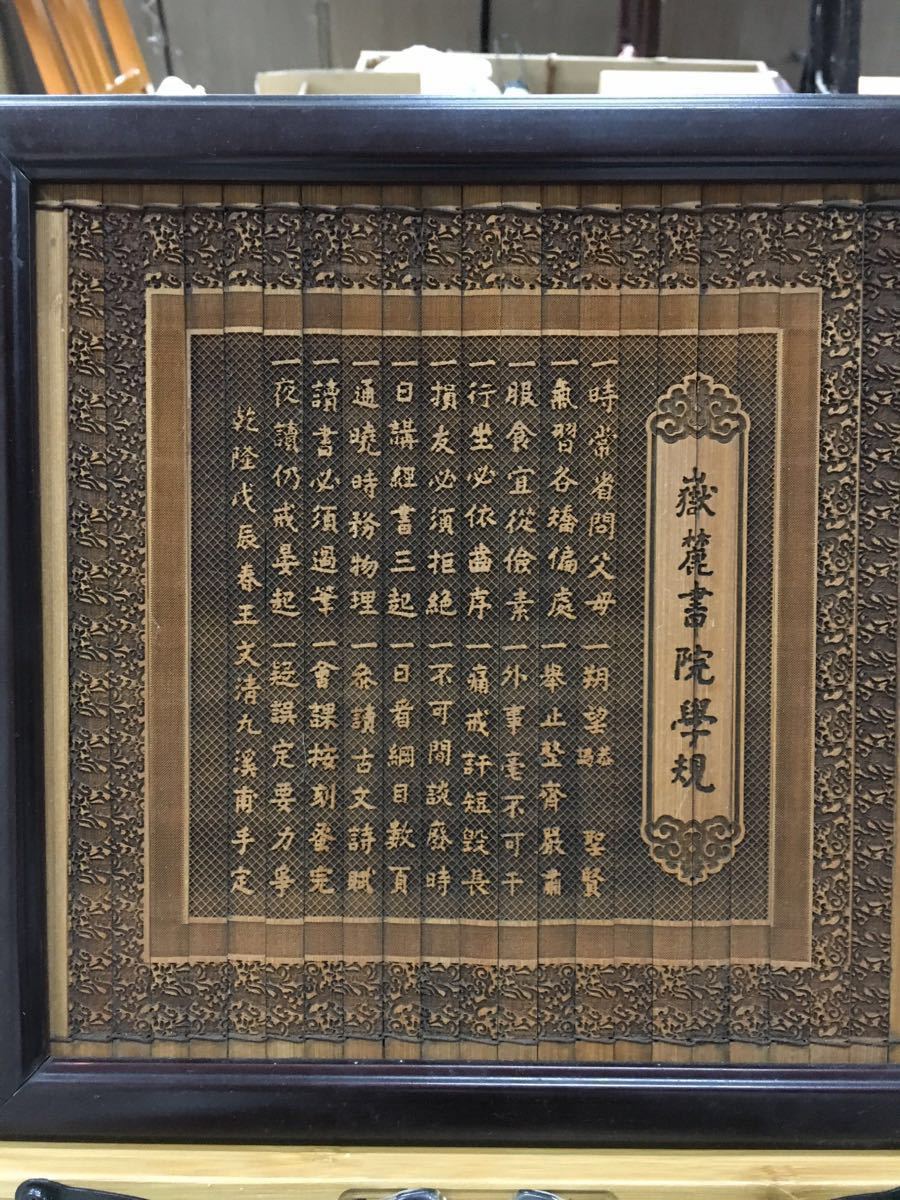 嶽麓書院學規
一時常省問父母一朔望 聖賢
一氣習各矯偏處一舉止整齊嚴肅
一服食宜從儉素一外事毫不可干
一行坐必依齒序一痛戒訐短毀長
一損友必須拒絕一不可閒談廢時
一日講經書三起一日看綱目數頁
一通曉時務物理一叅讀古文詩賦
一讀書必須過筆一會課按刻蚤完
一夜讀仍戒晏起一疑誤定要力爭
乾隆戊辰春王文清九溪甫手定